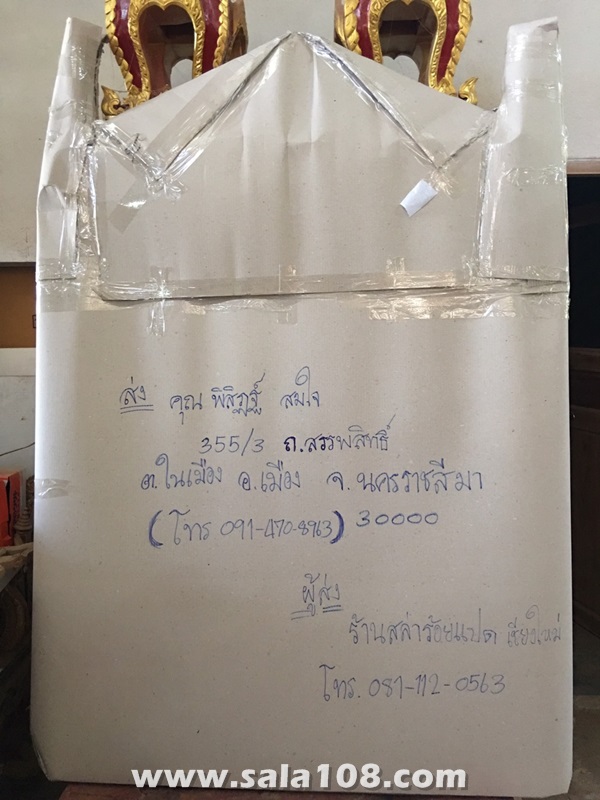 ส่ง คุณ พิสิฏฐ์ สมใจ
355/3 ถ.สรรพสิทธิ์
ต.ในเมือง อ.เมือง จ.นครราชสีมา
(โทร 091-470-8963) 30000
ผู้ส่ง
ร้านสล่าร้อยแปด เชียงใหม่
โทร. 081-112-0563
www.sala108.com